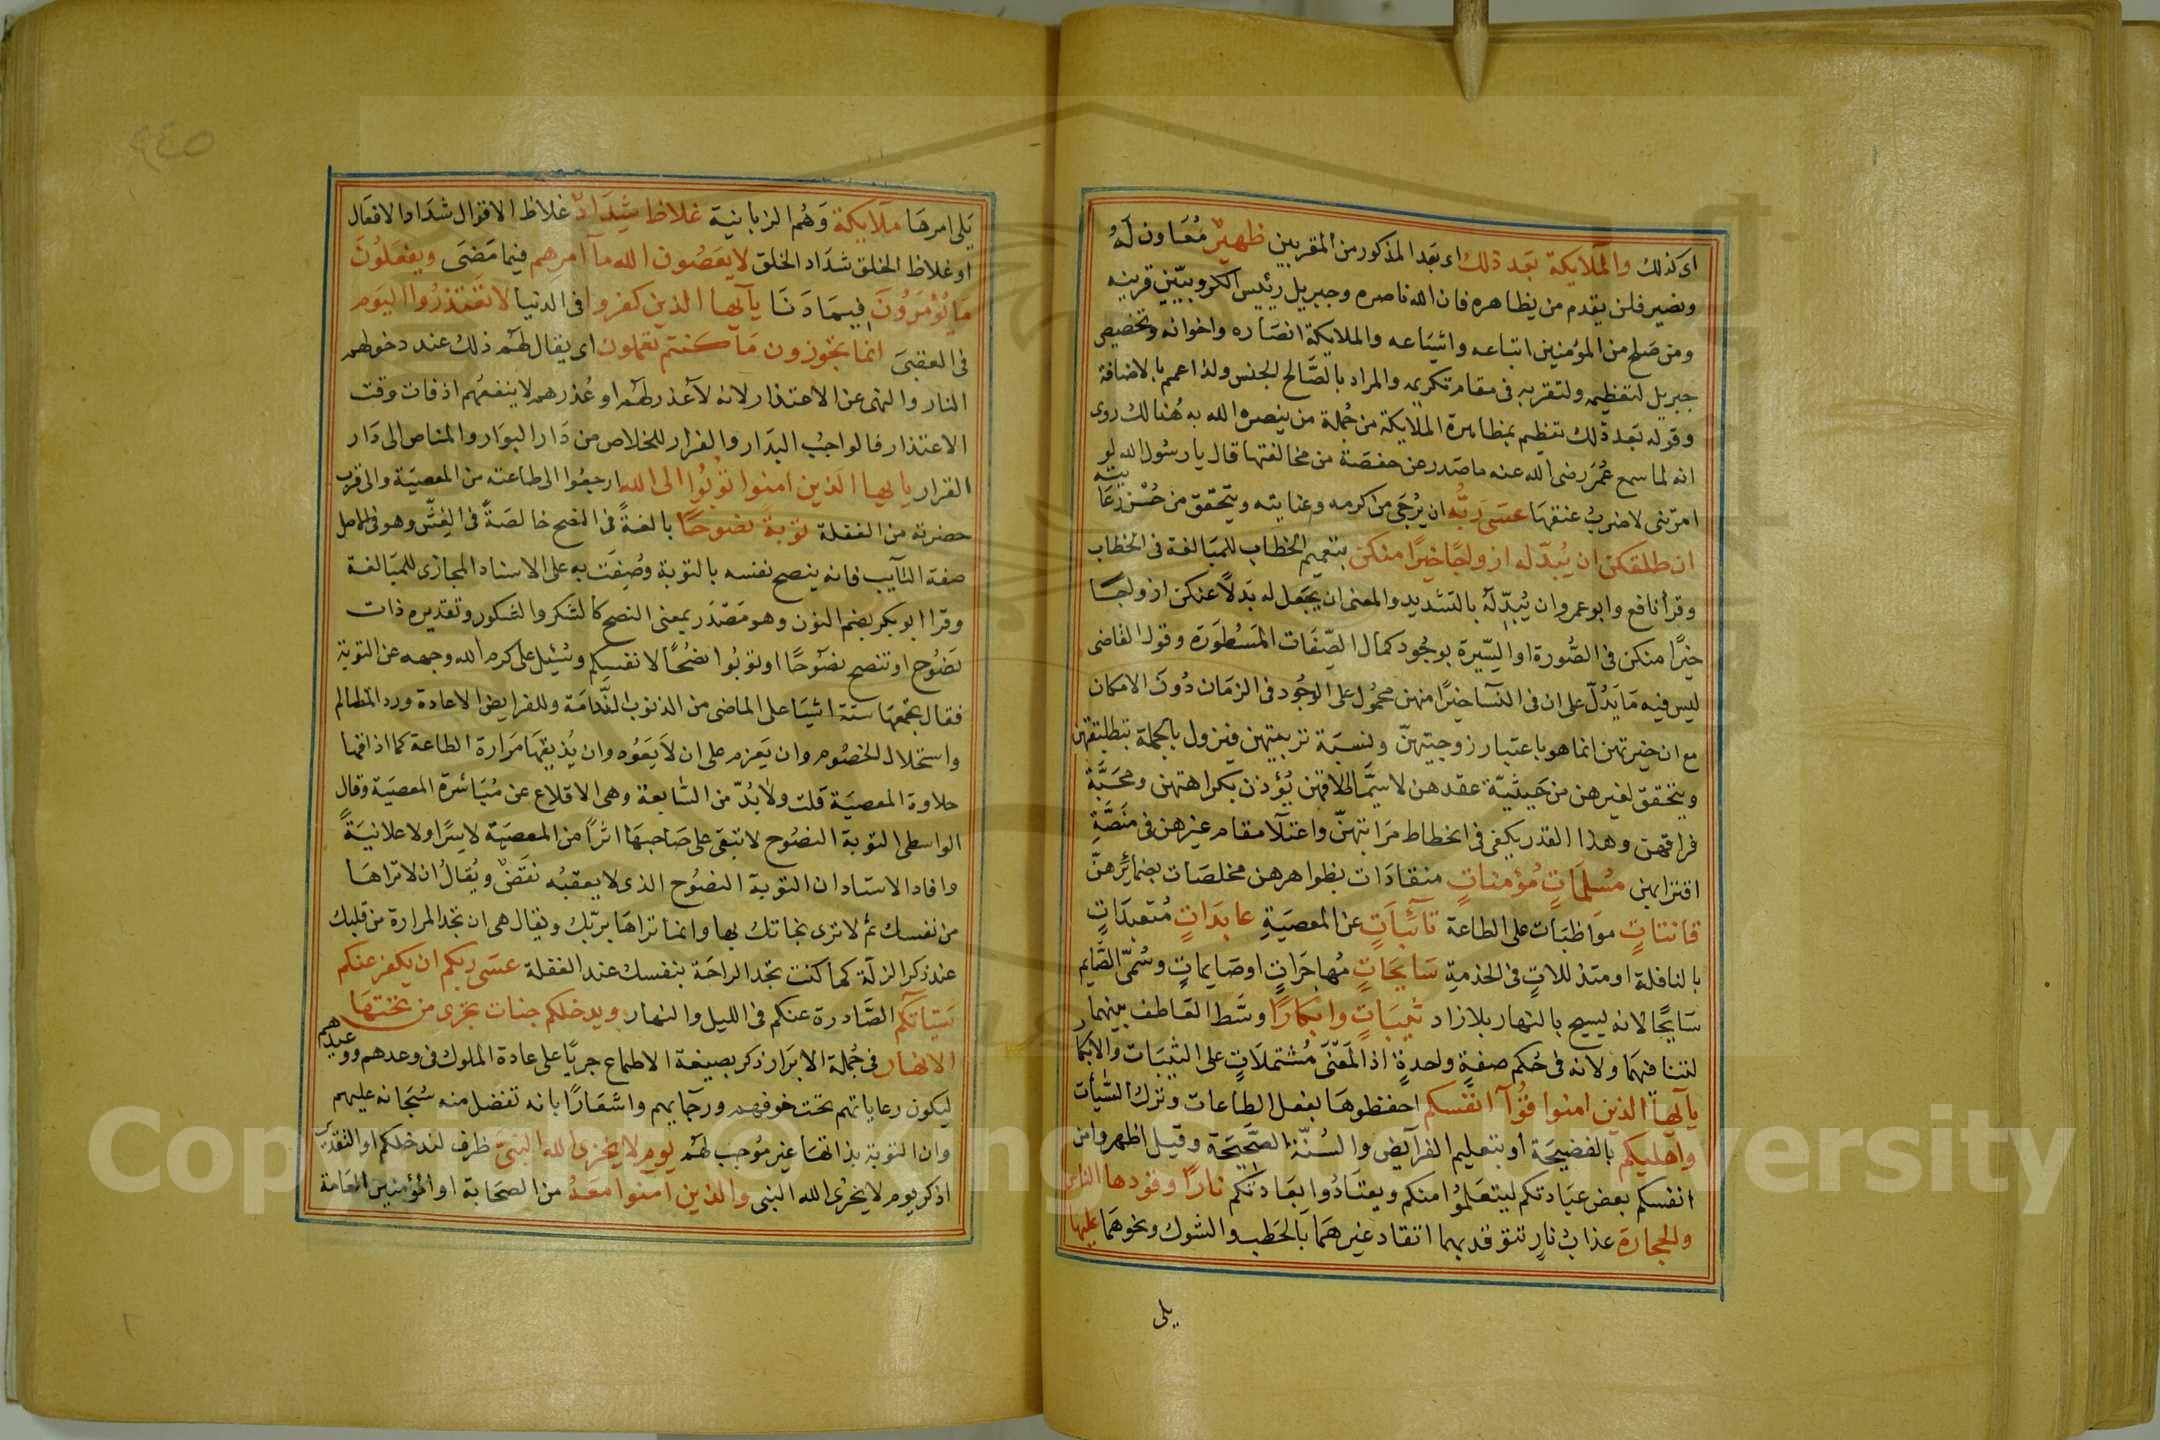 اى كذلك والملايكة بعد ذلك اى بعد المذكور من المقربين ظهير مُعَاون لَهُ
ونصير فلن يقدم من يظاهره فان الله ناصره وجبريل رئيس الكروبيّين قرينه
ومن صَلح من المؤمنين اتباعه واشياعه والملايكة انصَاره واخوانه وتخصيص
جبريل لتعظيمه ولتقربه فى مقام تكريمه والمراد بالصَّالح الجنس ولذا عمم بالاضافة
وقوله بَعد ذلك تعظيم بمظاهرة الملايكة من جُملة من ينصره الله به هُنالك روى
انه لما سمع عُمَر رضى الله عنه ما صَدر عن حفصَة من مخالفتها قال يا رسُول الله لو
امرتنى لاضربُ عنقهَا عسَى رَبُّه ان يُرجَى من كرمه وعنايته ويتحقق من حُسْن رعَايته
ان طلقكن ان يُبدّله ازولجًا خيرًا منكن بتعميم الخطاب للمبَالغة فى الخطاب
وقرأ نافع وابو عمرو ان يُبدّلهُ بالتشديد والمعنى ان يجَعل له بَدلاً عنكن ازولجًا
خيرًا منكن فى الصُّورة او السِّيرة بوجُود كمال الصِّفات المَسْطوَرَة وقول القاضى
ليس فيه مَا يَدُلّ على ان فى النسَآ خيرًا منهن محمُول على الوجُود فى الزمَان دُون الامكان
مع ان خيرتهن انما هو باعتبار زوجيتهنّ ولنسبَة تربيتهن فيزول بالجملة بتطليقهن
ويتحقق لغيرهن من حَيثيّة عقدهن لاسيَّما طلاقهن يُؤذن بكراهتهن ومحَبَّة
فراقهن وهذا القدر يكفى فى انحطاط مرَاتبهنّ واعتلآ مقام غيرهن فى منَصَّةِ
اقترابهن مُسْلمَاتٍ مُؤمناتٍ منقادَات بظواهرهن مخلصَات بضمائرهنّ
قانتاتٍ موَاظبَات على الطاعة تآئبَاتٍ عن المعصيَةِ عابدَاتٍ مُتعبدَاتٍ
بالنافلة او متذللاتٍ فى الخدمةِ سَايحَاتٍ مُهاجَراتٍ او صَايماتٍ وسُمّىَ الصَّايم
سَايحًا لانه ليسيح بالنهار بلا زاد ثيبَاتٍ وابكارًا وسَّط العَاطف بينهما
لتنافيهمَا ولانه فى حُكم صفةٍ ولحدةٍ اذ المَعنَى مُشتملَاتٍ على الثيبَات والابكار
يآيهَا الذين امنوا قُوْآ انفسكم احفظوهَا بفعل الطاعات وترك السَّيأت
وآهليكم بالفضيحَة او بتعليم الفرآيض والسُنّة الصَّحِيحَة وقيل اظهروا من
انفسكم بعض عبَادتكم ليتعَلموُا منكم ويعتَادُوا بعَادتكم نارًا وقودها الناس
والحجارة عذابُ نارٍ تتوقد بهما اتقاد غيرهمَا بالحَطب والشوك ونحوهمَا عليها
يلى
٩٤٥
يَلى امرهَا مَلآيكة وَهُم الزبانية غلاظ شِدَادٌ غلاظ الاقوال شدَاد الافعَال
او غلاظ الخلق شدَاد الخلق لا يعَصُون الله مآ امرهم فيما مَضَى ويفعَلُونَ
مَا يُؤمَرُونَ فيمَا دَنَا يآيها الذين كفروا فى الدنيا لا تعتذرُوا اليَوم
فى العقبىَ انما تجزون مَا كنتم تعملون اى يقال لهُم ذلك عند دخولهم
النار والنهى عن الاعتذار لانه لاعُذر لهُم او عُذرهم لا ينفعهُم اذ فات وقت
الاعتذار فالواجبُ البدَار والفرار للخلاص من دَار البوَار والمناص الى دَار
القرار يايها الذين امنوا توبُوا الى الله ارجعُوا الى طاعته من المعصيَة والى قرب
حضرته من الغفلة توبَة نصُوحًا بالغةً فى النصح خالصَةً فى الغِشّ وهو فى الاصل
صفة التآيب فانه ينصح نفسه بالتوبة وصُفِفَت به على الاسناد المجازى للمبَالغة
وقرا ابوبكر بضم النون وهو مَصْدَر بمعنى النصح كالشكر والشكور وتقديره ذات
نصُوح او تنصح نصُوحًا او توبُوا نصْحًا لانفسكم وسُئيل على كرم الله وجهه عن التوبة
فقال يجمعهَا ستة اشيَا على الماضى من الذنوب النَّدَامَة وللفرايض الاعادة ورد المظالم
واستحلال الخصُوم وان يَعزم على ان لايَعوُد وان يُذيقهَا مَرارة الطاعة كما اذاقها
حلاوة المعصيَة قلت ولابُدّ من السَّابعة وهى الاقلاع عن مُبَاشرَة المعصيَة وقال
الواسطى التوبة النصُوح لا تبقى على صَاحبهَا اثرًا من المعصيَة لا سرًا ولا علانيَةً
وافاد الاستاد ان التوبة النصُوح الذى لا يعقبُه نقضٌ ويُقالُ ان لا تراهَا
من نفسك ثم لا ترى نجاتك بها وانما تراهَا بربّك ويقال هى ان تجد المرارة من قلبك
عند ذكر الزلّة كما كنت تجد الراحَة بنفسك عند الغفلة عسَى ربكم ان يكفر عنكم
سَيّئاتكم الصَّادرة عنكم فى الليل والنهار ويدخلكم جنات تجرى من تحتهَا
الانهار فى جُملة الابرَار ذكر بصيغة الاطماع جريًا على عادة الملوك فى وعدهم ووعيدهم
ليكون رعاياتهم تحت خوفهم ورجآيهم واشعَارًا بانه تفضل منه سُبحَانه عليهم
وان التوبة بذاتها غير مُوجب لهُم يوم لا يخزى الله النبىّ ظرف لندخلكم او التقدير
اذكر يوم لا يخزى الله النبى والذين امنوا معَهُ من الصحَابة او المؤمنين العَامة